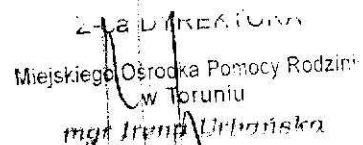 Z-ca DYREKTORA
Miejskiego Ośrodka Pomocy Rodzini
w Toruniu
mgr Irena Urbańska